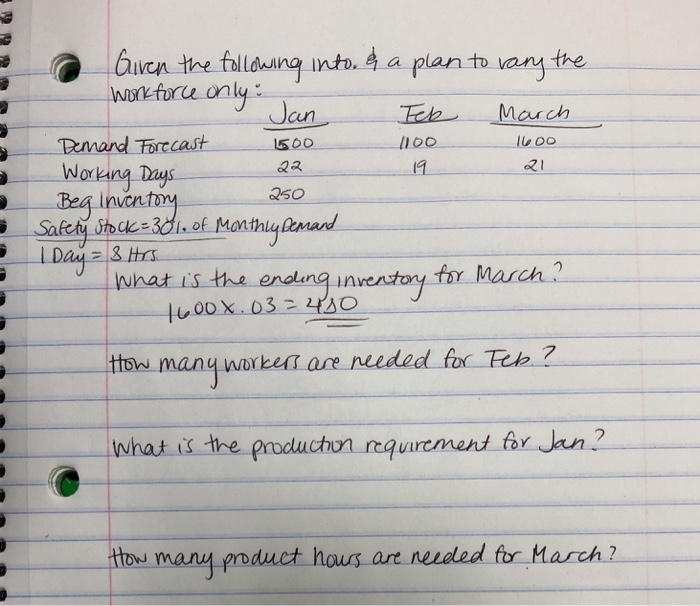 Given the following info. & a plan to vary the
workforce only:
Jan Feb March
Demand Forecast 1500 1100 1600
Working Days 22 19 21
Beg Inventory 250
Safety Stock = 30%. of Monthly Demand
1 Day = 8 Hrs
What is the ending inventory for March?
1600 x .03 = 480
How many workers are needed for Feb.?
What is the production requirement for Jan?
How many product hours are needed for March?